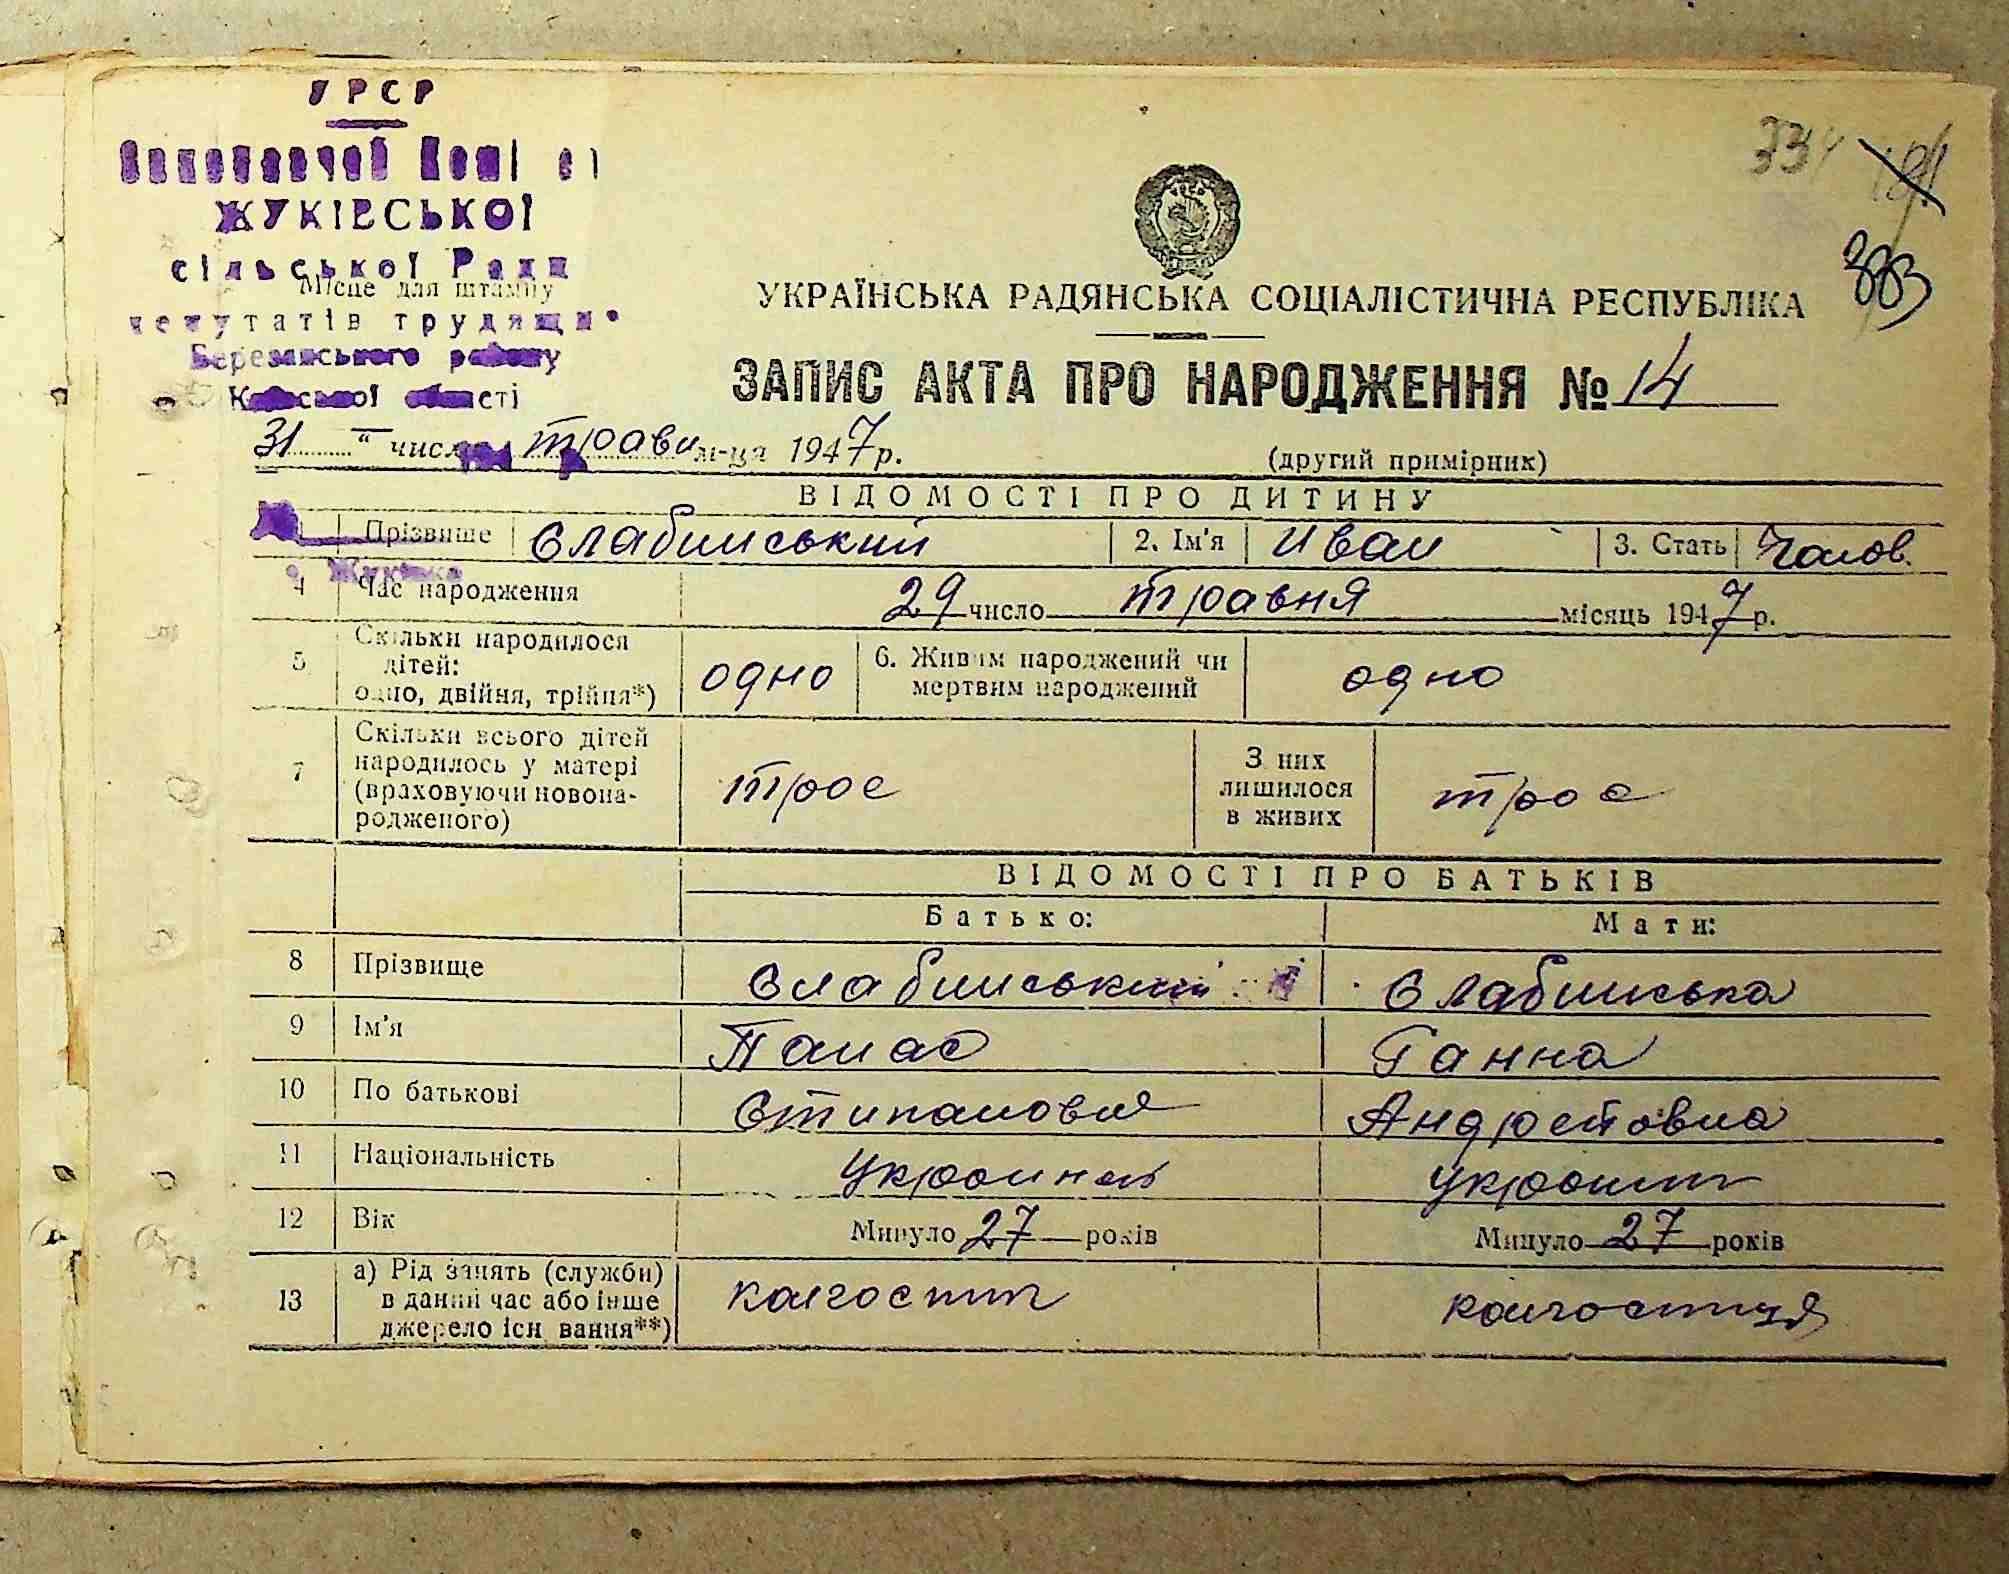 УРСР
ЖУКІВСЬКОЇ
сільської Ради
Місце для штампу
депутатів трудящих
Березанського району
Київської області
334
333
УКРАЇНСЬКА РАДЯНСЬКА СОЦІАЛІСТИЧНА РЕСПУБЛІКА
ЗАПИС АКТА ПРО НАРОДЖЕННЯ № 14
31 " число травн м-ця 1947 р.
(другий примірник)
ВІДОМОСТІ ПРО ДИТИНУ
Прізвище Слабинський 2. Ім'я Иван 3. Стать Чолов.
с. Жуківка
4 Час народження 29 число травня місяць 1947 р.
5 Скільки народилося дітей: одно, двійня, трійня*) одно 6. Живим народжений чи мертвим народжений одно
7 Скільки всього дітей народилось у матері (враховуючи новонародженого) троє З них лишилося в живих троє
ВІДОМОСТІ ПРО БАТЬКІВ
Батько: Мати:
8 Прізвище Слабинський Слабинська
9 Ім'я Панас Ганна
10 По батькові Стипанович Андреївна
11 Національність
12 Вік Минуло 27 років Минуло 27 років
13 а) Рід занять (служби) в даний час або інше джерело існування**) колгоспн колгоспниця